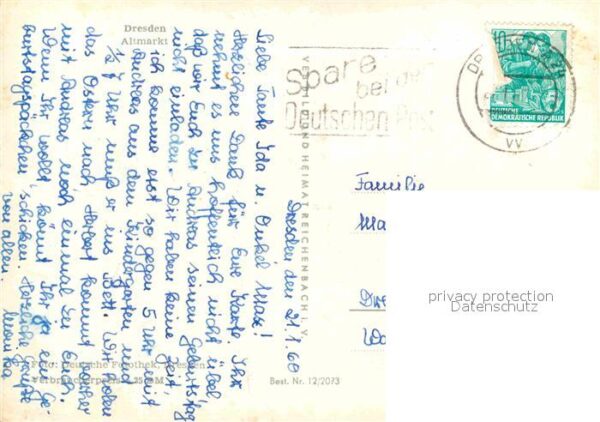 Dresden
Altmarkt
Spare
bei der
Deutschen Post
10
DEUTSCHE
DEMOKRATISCHE REPUBLIK
VV
VERLAG BILD UND HEIMAT REICHENBACH I. V.
Dresden den 21.1.60
Liebe Tante Ida u. Onkel Max!
Herzlichen Dank für Eure Karte. Ihr
nehmt es uns hoffentlich nicht übel,
daß wir Euch zu Andreas seinen Geburtstag
nicht einladen. Wir haben keine Zeit,
ich komme erst so gegen 5 Uhr mit
Andreas aus dem Kindergarten und
½ 7 Uhr muß er ins Bett. Wir holen
das Ostern nach, Herbert kommt vorher
mit Andreas noch einmal zu Euch.
Wenn Ihr wollt könnt Ihr ja ein Ge-
burtstagspäckchen schicken. Herzliche Grüße
von allen. Monika
Familie
Ma
Dre
Foto: Deutsche Fotothek, Dresden
Verbraucherpreis 0,25 DM
Best. Nr. 12/2073
privacy protection
Datenschutz